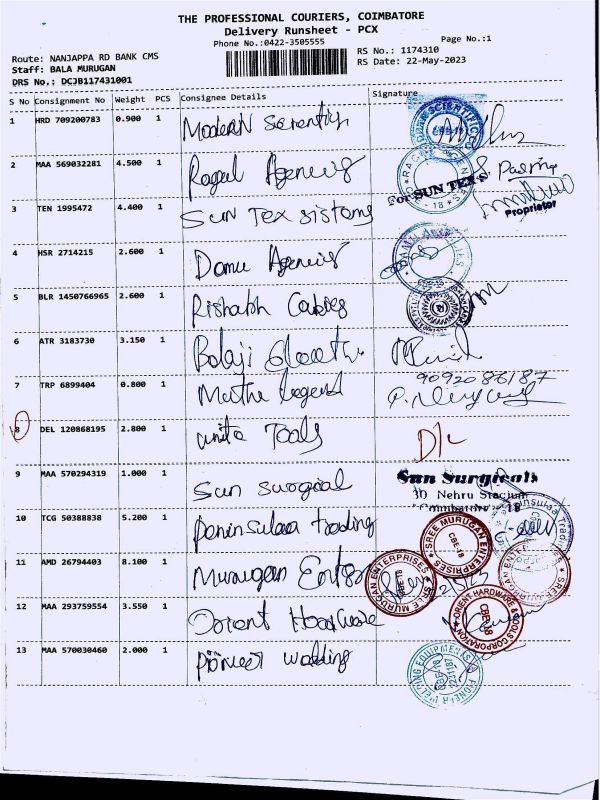 THE PROFESSIONAL COURIERS, COIMBATORE
Delivery Runsheet - PCX
Phone No.:0422-3505555
Page No.:1
Route: NANJAPPA RD BANK CMS
Staff: BALA MURUGAN
DRS No.: DCJB117431001
RS No.: 1174310
RS Date: 22-May-2023
S No Consignment No Weight PCS Consignee Details Signature
1 HRD 709200783 0.900 1 Modern Scientific
2 MAA 569032281 4.500 1 Agencies
For SUN TEX S
Proprietor
3 TEN 1995472 4.400 1 Sun Tex sistoms
4 HSR 2714215 2.600 1 Damu Agencies
5 BLR 1450766965 2.600 1 Rishabh Cables
6 ATR 3183730 3.150 1 Balaji
9092086187
7 TRP 6899404 0.800 1 Legend
8 DEL 120868195 2.800 1 unita Tools D/c
9 MAA 570294319 1.000 1 Sun surgical
Sun Surgicals
Nehru Stadium
Coimbatore - 18
10 TCG 50388838 5.200 1 Peninsulaa trading
SREE MURUGAN ENTERPRISES
CBE-18
11 AMD 26794403 8.100 1 Murugan Enter
12 MAA 293759554 3.550 1 Orient Hardware
ORIENT HARDWARE & TOOLS CORPORATION
CBE-18
13 MAA 570030460 2.000 1 pioneer welding